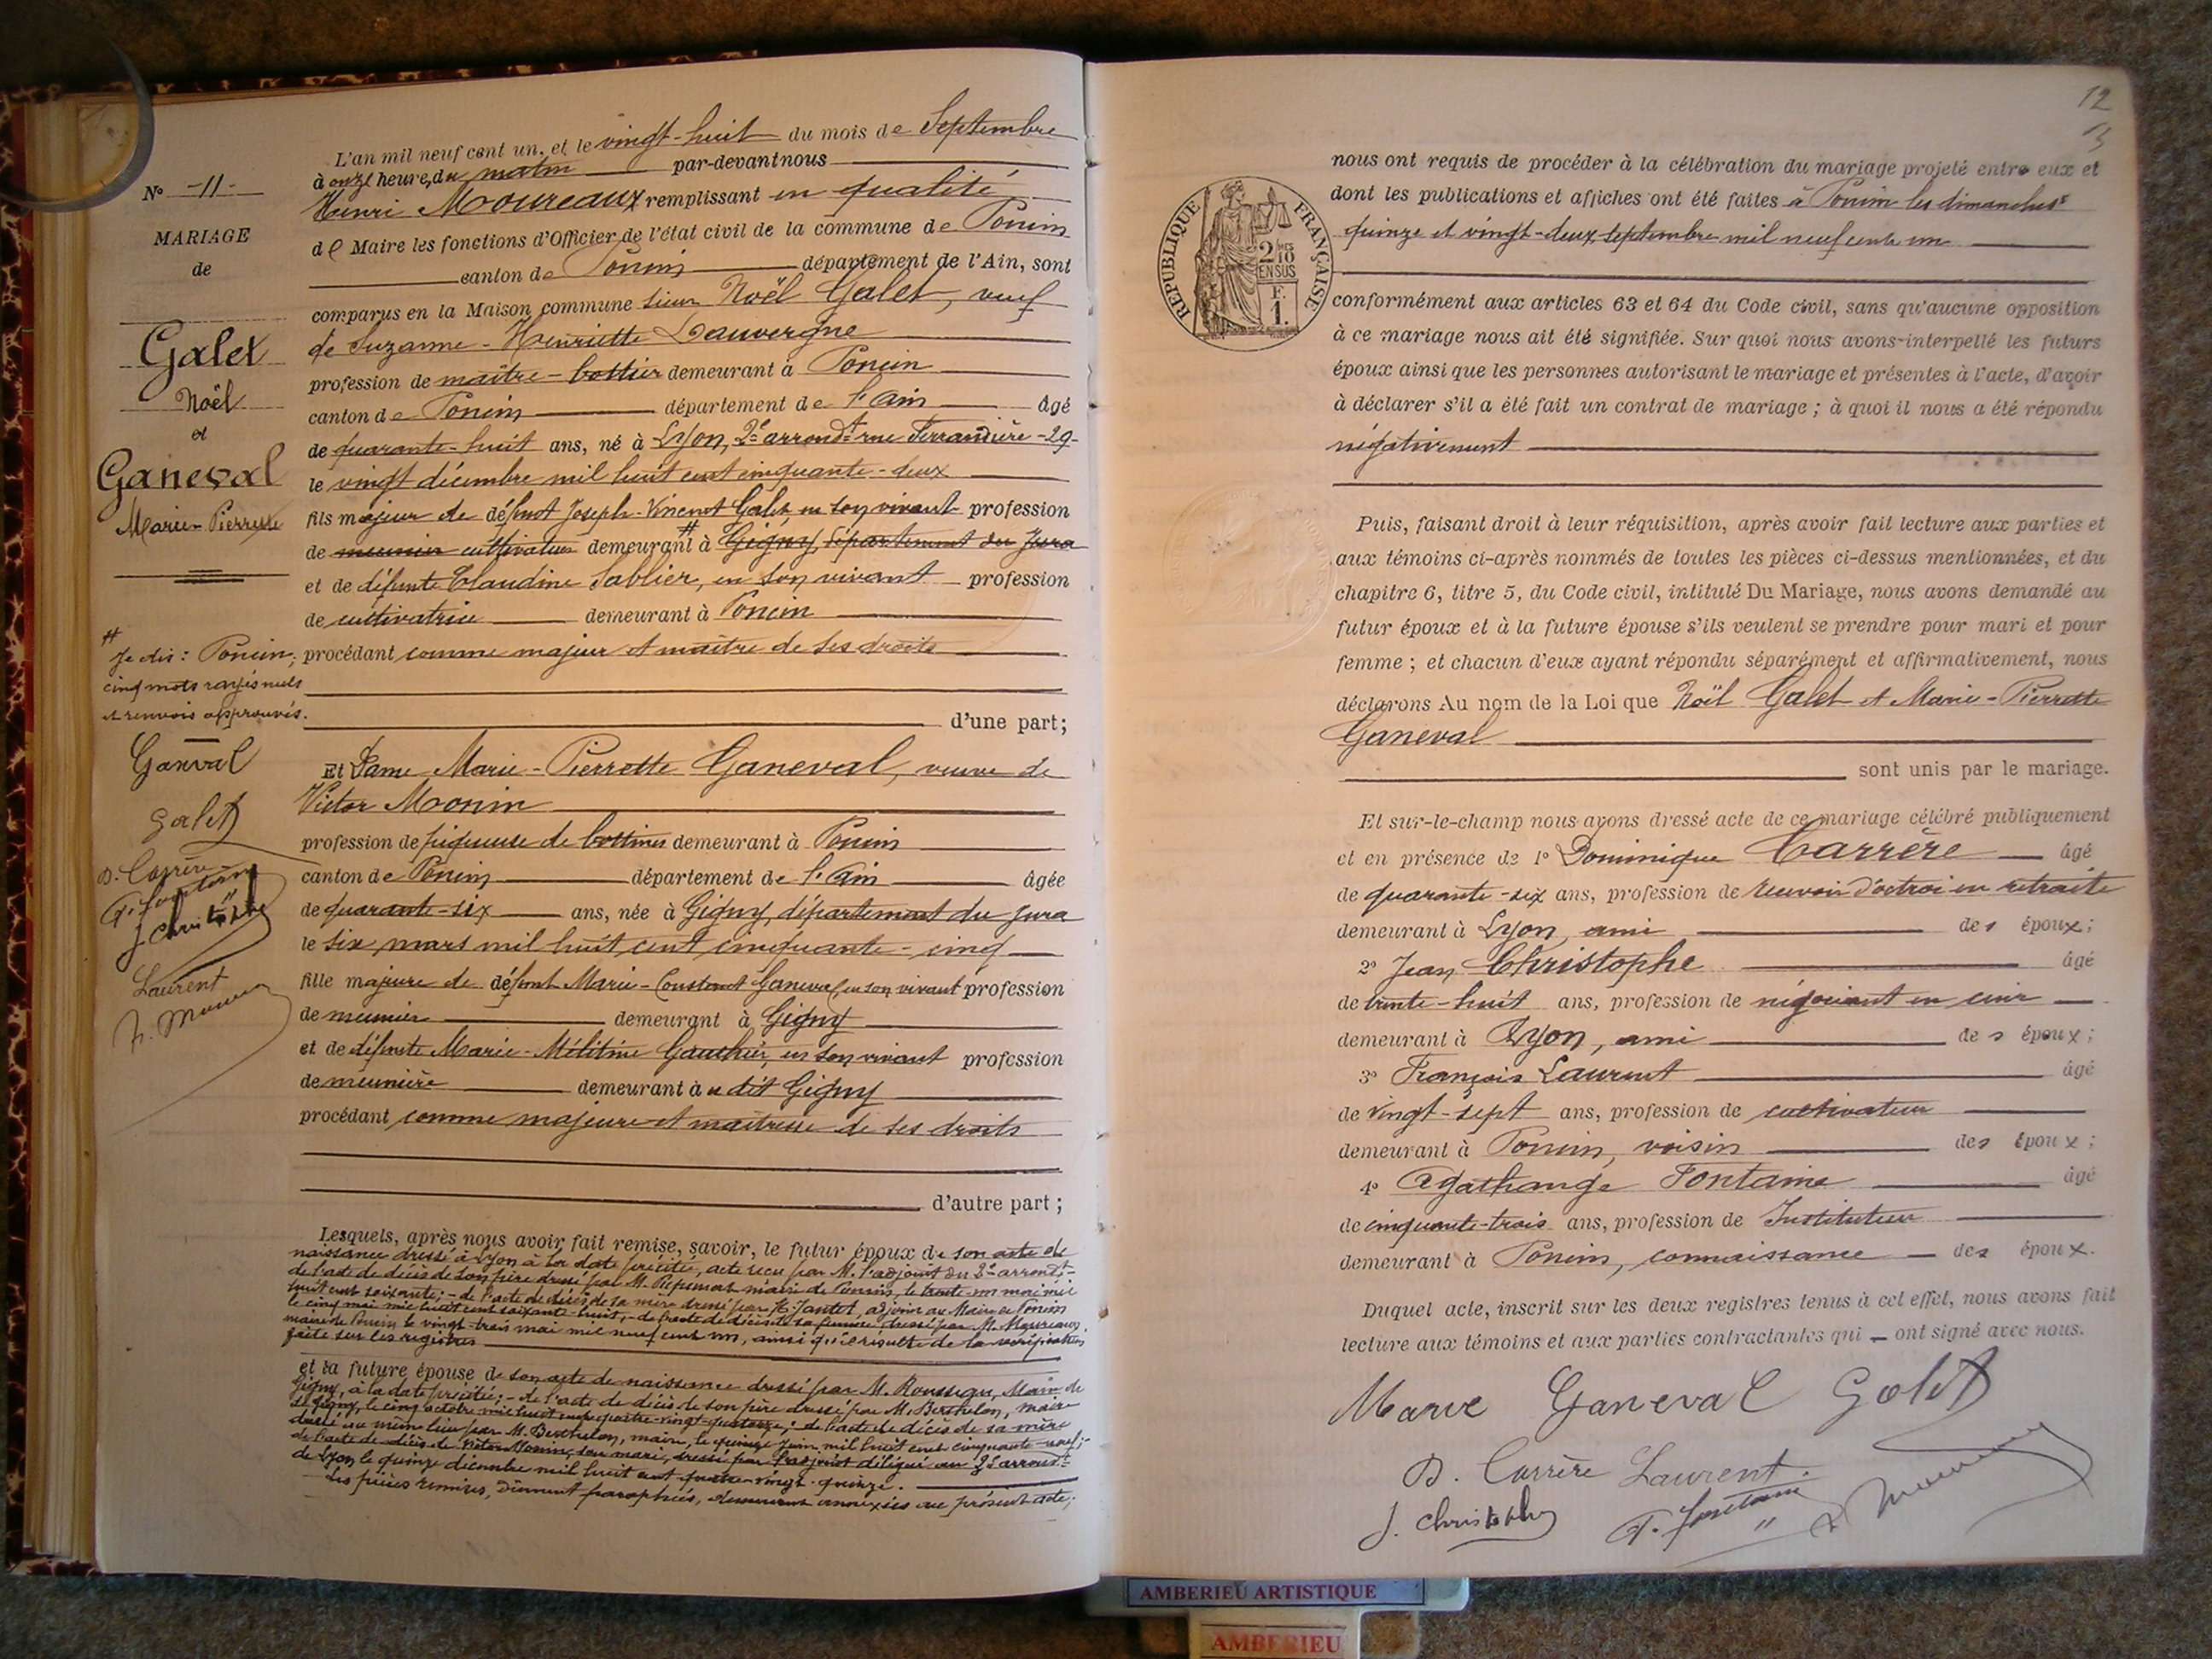 L'an mil neuf cent un, et le vingt-huit du mois de Septembre
à onze heure, du matin par-devant nous
Henri Moureaux remplissant en qualité
de Maire les fonctions d'Officier de l'état civil de la commune de Poncin
canton de Poncin département de l'Ain, sont
comparus en la Maison commune sieur Noël Galet, veuf
de Suzanne-Henriette Dauvergne
profession de maître-bottier demeurant à Poncin
canton de Poncin département de l'Ain âgé
de quarante-huit ans, né à Lyon, 2e arrondt rue Ferrandière -29-
le vingt décembre mil huit cent cinquante-deux
fils majeur de défunt Joseph-Vincent Galet, en son vivant profession
de meunier cultivateur demeurant # à Gigny, département du Jura
et de défunte Claudine Sablier, en son vivant profession
de cultivatrice demeurant à Poncin
procédant comme majeur et maître de ses droits
d'une part;
Et Dame Marie-Pierrette Ganeval, veuve de
Victor Monin
profession de piqueuse de bottines demeurant à Poncin
canton de Poncin département de l'Ain âgée
de quarante-six ans, née à Gigny, département du Jura
le six mars mil huit cent cinquante-cinq
fille majeure de défunt Marie-Constant Ganeval, en son vivant profession
de meunier demeurant à Gigny
et de défunte Marie-Mélitine Gauthier, en son vivant profession
de meunière demeurant à u dit Gigny
procédant comme majeure et maîtresse de ses droits
d'autre part;
Lesquels, après nous avoir fait remise, savoir, le futur époux de son acte de
naissance dressé à Lyon à la date précitée, acte reçu par M. l'adjoint du 2e arrondt-
de l'acte de décès de son père dressé par M. maire de Poncin, le trente-un mai mil
huit cent soixante; - de l'acte de décès de sa mère dressé par H. Jantet, adjoint au Maire de Poncin
le cinq mai mil huit cent soixante-huit, - de l'acte de décès de sa femme, dressé par M. Moureaux,
maire de Poncin le vingt-trois mai mil neuf cent un, ainsi qu'il résulte de la vérification
faite sur les registres
et la future épouse de son acte de naissance dressé par M. Rousseau, Maire de
Gigny, à la date précitée; - de l'acte de décès de son père dressé par M. Berthelon, maire
de Gigny, le cinq octobre mil huit cent quatre-vingt-quatorze; de l'acte de décès de sa mère
dressé au même lieu par M. Berthelon, maire, le quinze juin mil huit cent cinquante-neuf;
de l'acte de décès de Victor Monin, son mari, dressé par l'adjoint délégué au 3e arrondt
de Lyon le quinze décembre mil huit cent quatre-vingt-quinze.
Les pièces remises, dûment paraphées, demeurent annexées au présent acte;
No -11-
MARIAGE
de
Galet
Noël
et
Ganeval
Marie-Pierrette
#
Je dis: Poncin;
cinq mots rayés nuls
et renvois approuvés.
Ganval
Galet
D. Carrère
A. Fontaine
J. Christophe
Laurent
12
3
nous ont requis de procéder à la célébration du mariage projeté entre eux et
dont les publications et affiches ont été faites à Poncin les dimanches
quinze et vingt-deux septembre mil neuf cent un
REPUBLIQUE FRANÇAISE
2/10
EN SUS
F.
1.
conformément aux articles 63 et 64 du Code civil, sans qu'aucune opposition
à ce mariage nous ait été signifiée. Sur quoi nous avons-interpellé les futurs
époux ainsi que les personnes autorisant le mariage et présentes à l'acte, d'avoir
à déclarer s'il a été fait un contrat de mariage; à quoi il nous a été répondu
négativement
Puis, faisant droit à leur réquisition, après avoir fait lecture aux parties et
aux témoins ci-après nommés de toutes les pièces ci-dessus mentionnées, et du
chapitre 6, titre 5, du Code civil, intitulé Du Mariage, nous avons demandé au
futur époux et à la future épouse s'ils veulent se prendre pour mari et pour
femme; et chacun d'eux ayant répondu séparément et affirmativement, nous
déclarons Au nom de la Loi que Noël Galet et Marie-Pierrette
Ganeval
sont unis par le mariage.
Et sur-le-champ nous avons dressé acte de ce mariage célébré publiquement
et en présence de 1o Dominique Carrère âgé
de quarante-six ans, profession de receveur d'octroi en retraite
demeurant à Lyon, ami des époux;
2o Jean Christophe âgé
de trente-huit ans, profession de négociant en cuir
demeurant à Lyon, ami des époux;
3o François Laurent âgé
de vingt-sept ans, profession de cultivateur
demeurant à Poncin, voisin des époux;
4o Agathange Fontaine âgé
de cinquante-trois ans, profession de Instituteur
demeurant à Poncin, connaissance des époux.
Duquel acte, inscrit sur les deux registres tenus à cet effet, nous avons fait
lecture aux témoins et aux parties contractantes qui ont signé avec nous.
Marie Ganeval Galet
D. Carrère Laurent
J. Christophe A. Fontaine
AMBERIEU ARTISTIQUE
AMBERIEU